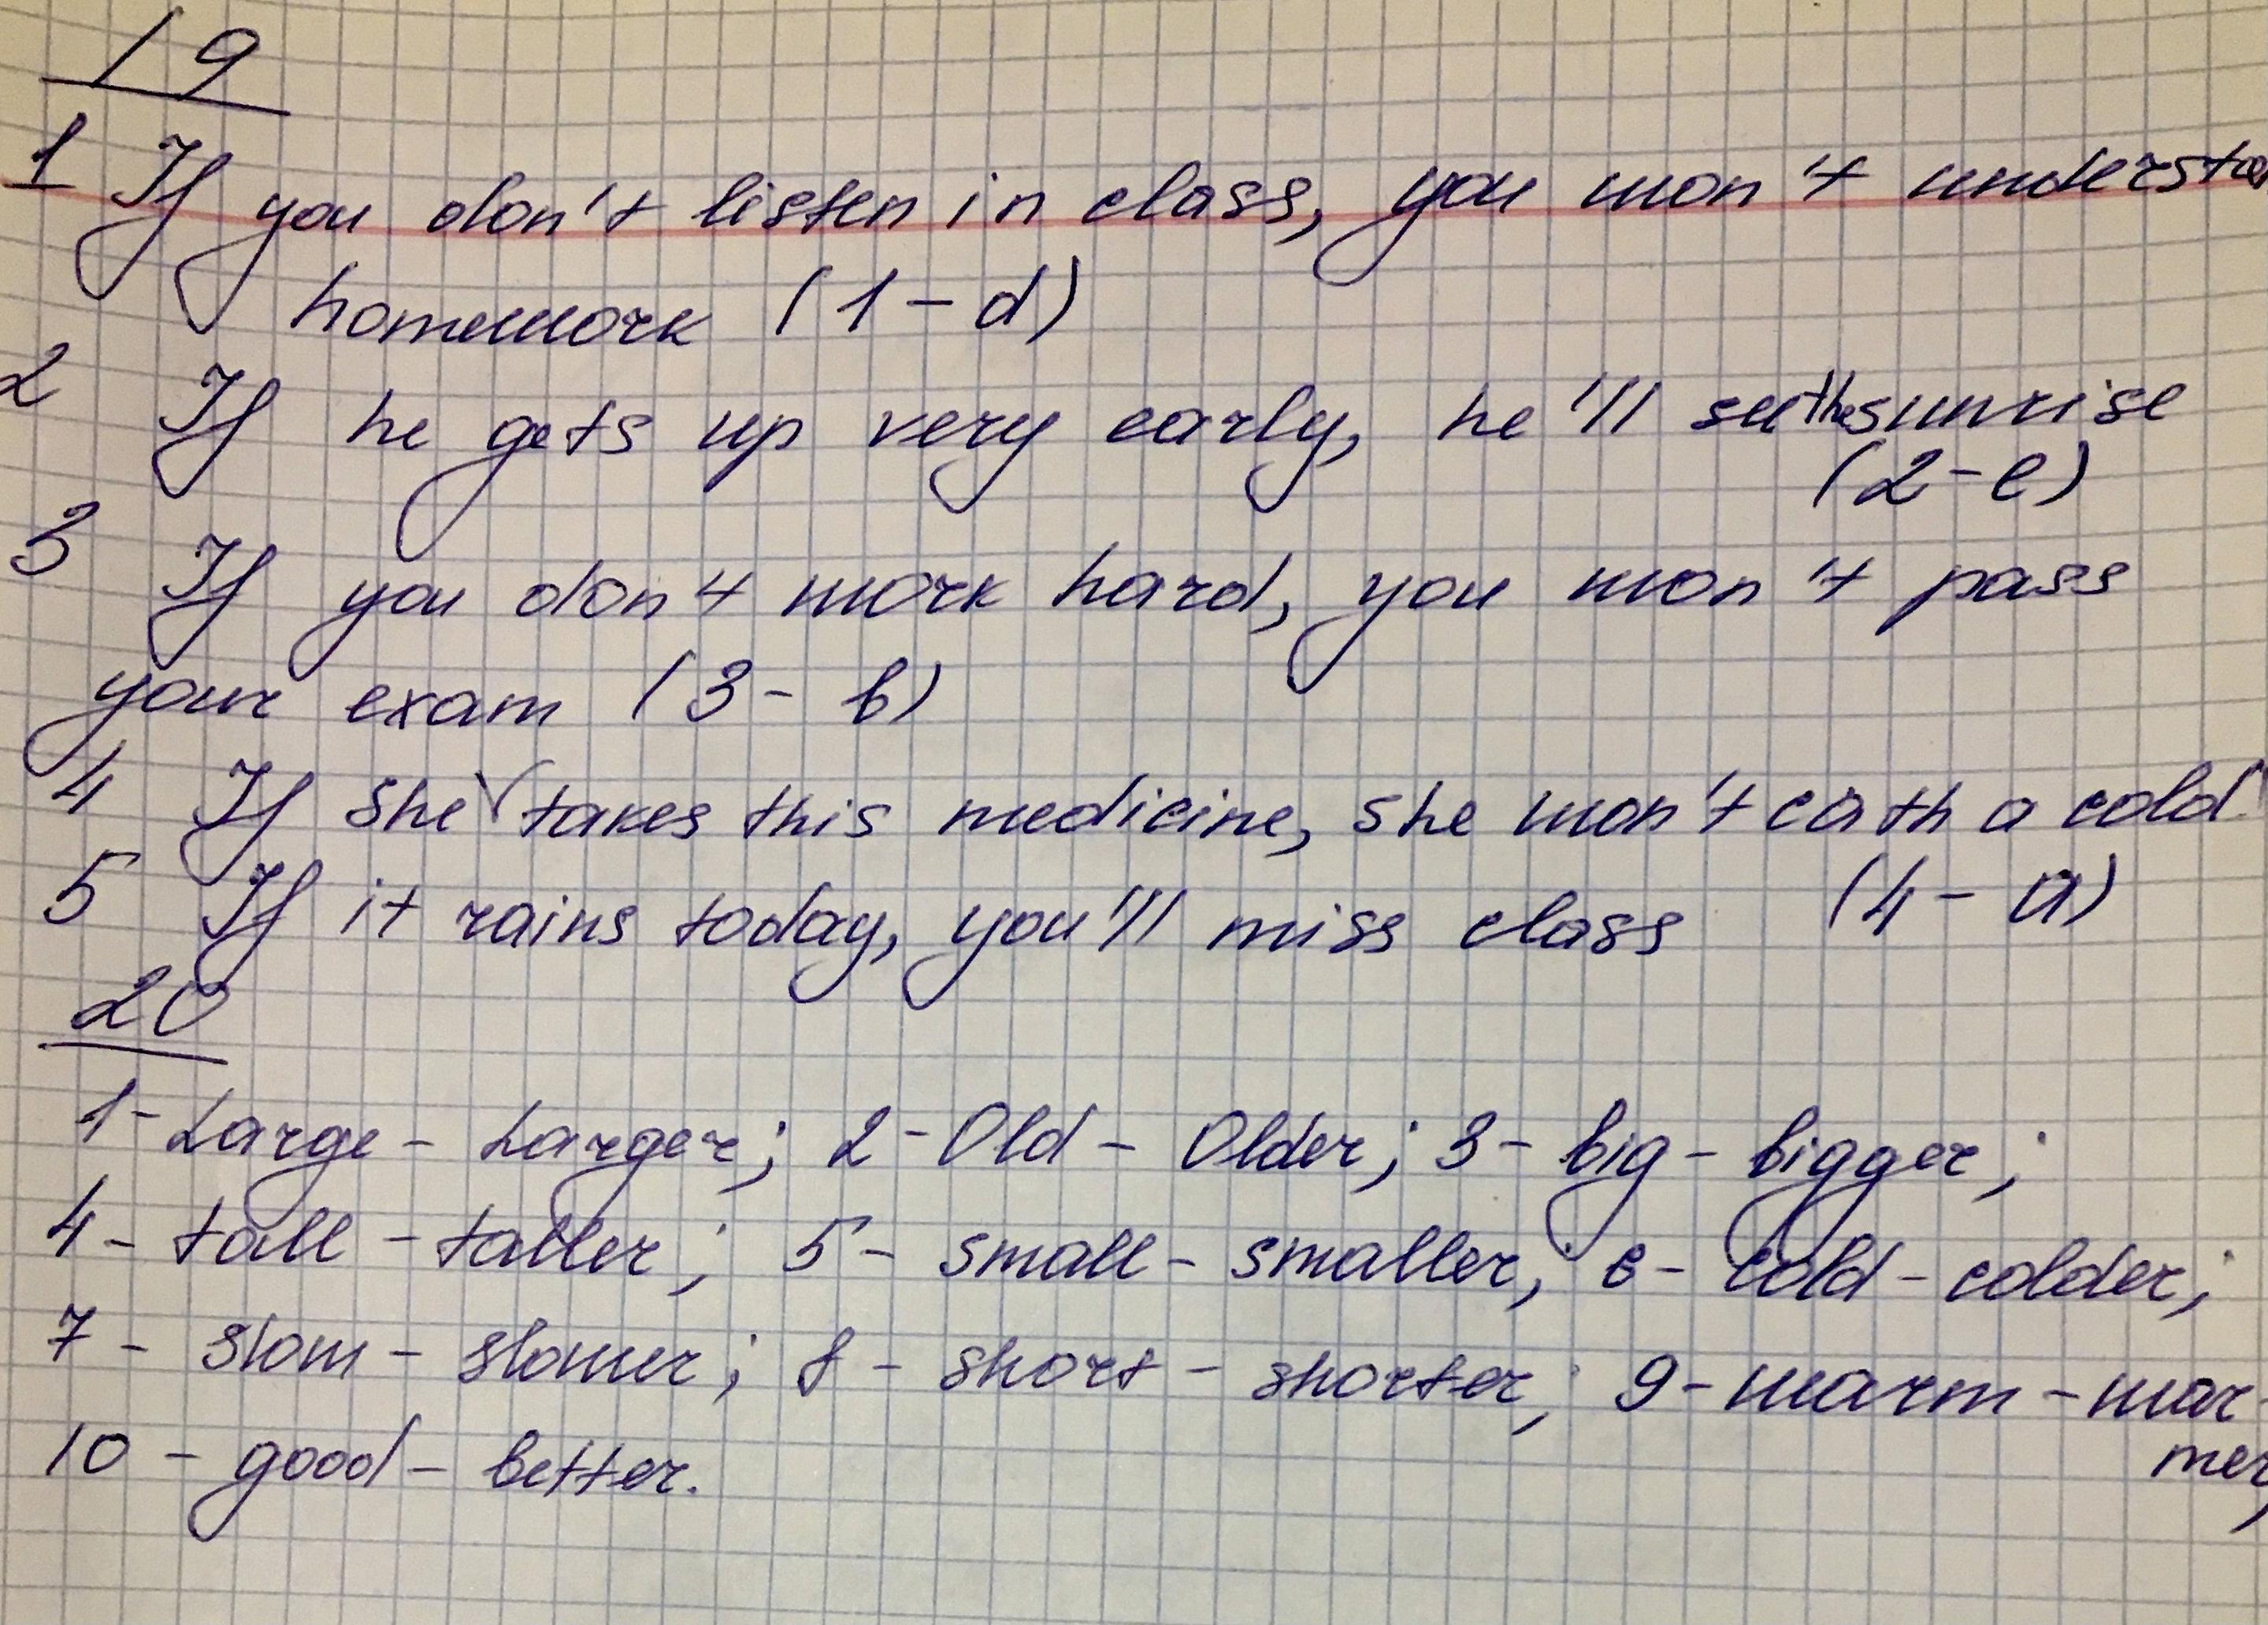 19
1 If you don't listen in class, you won't understan
homework (1-d)
2 If he gets up very early, he'll see the sunrise
(2-e)
3 If you don't work hard, you won't pass
your exam (3-b)
4 If she takes this medicine, she won't cath a cold
(4-a)
5 If it rains today, you'll miss class
20
1-Large-Larger; 2-Old-Older; 3-big-bigger;
4-tall-taller; 5-small-smaller; 6-cold-colder;
7-slow-slower; 8-short-shorter; 9-warm-war-
mer;
10-good-better.